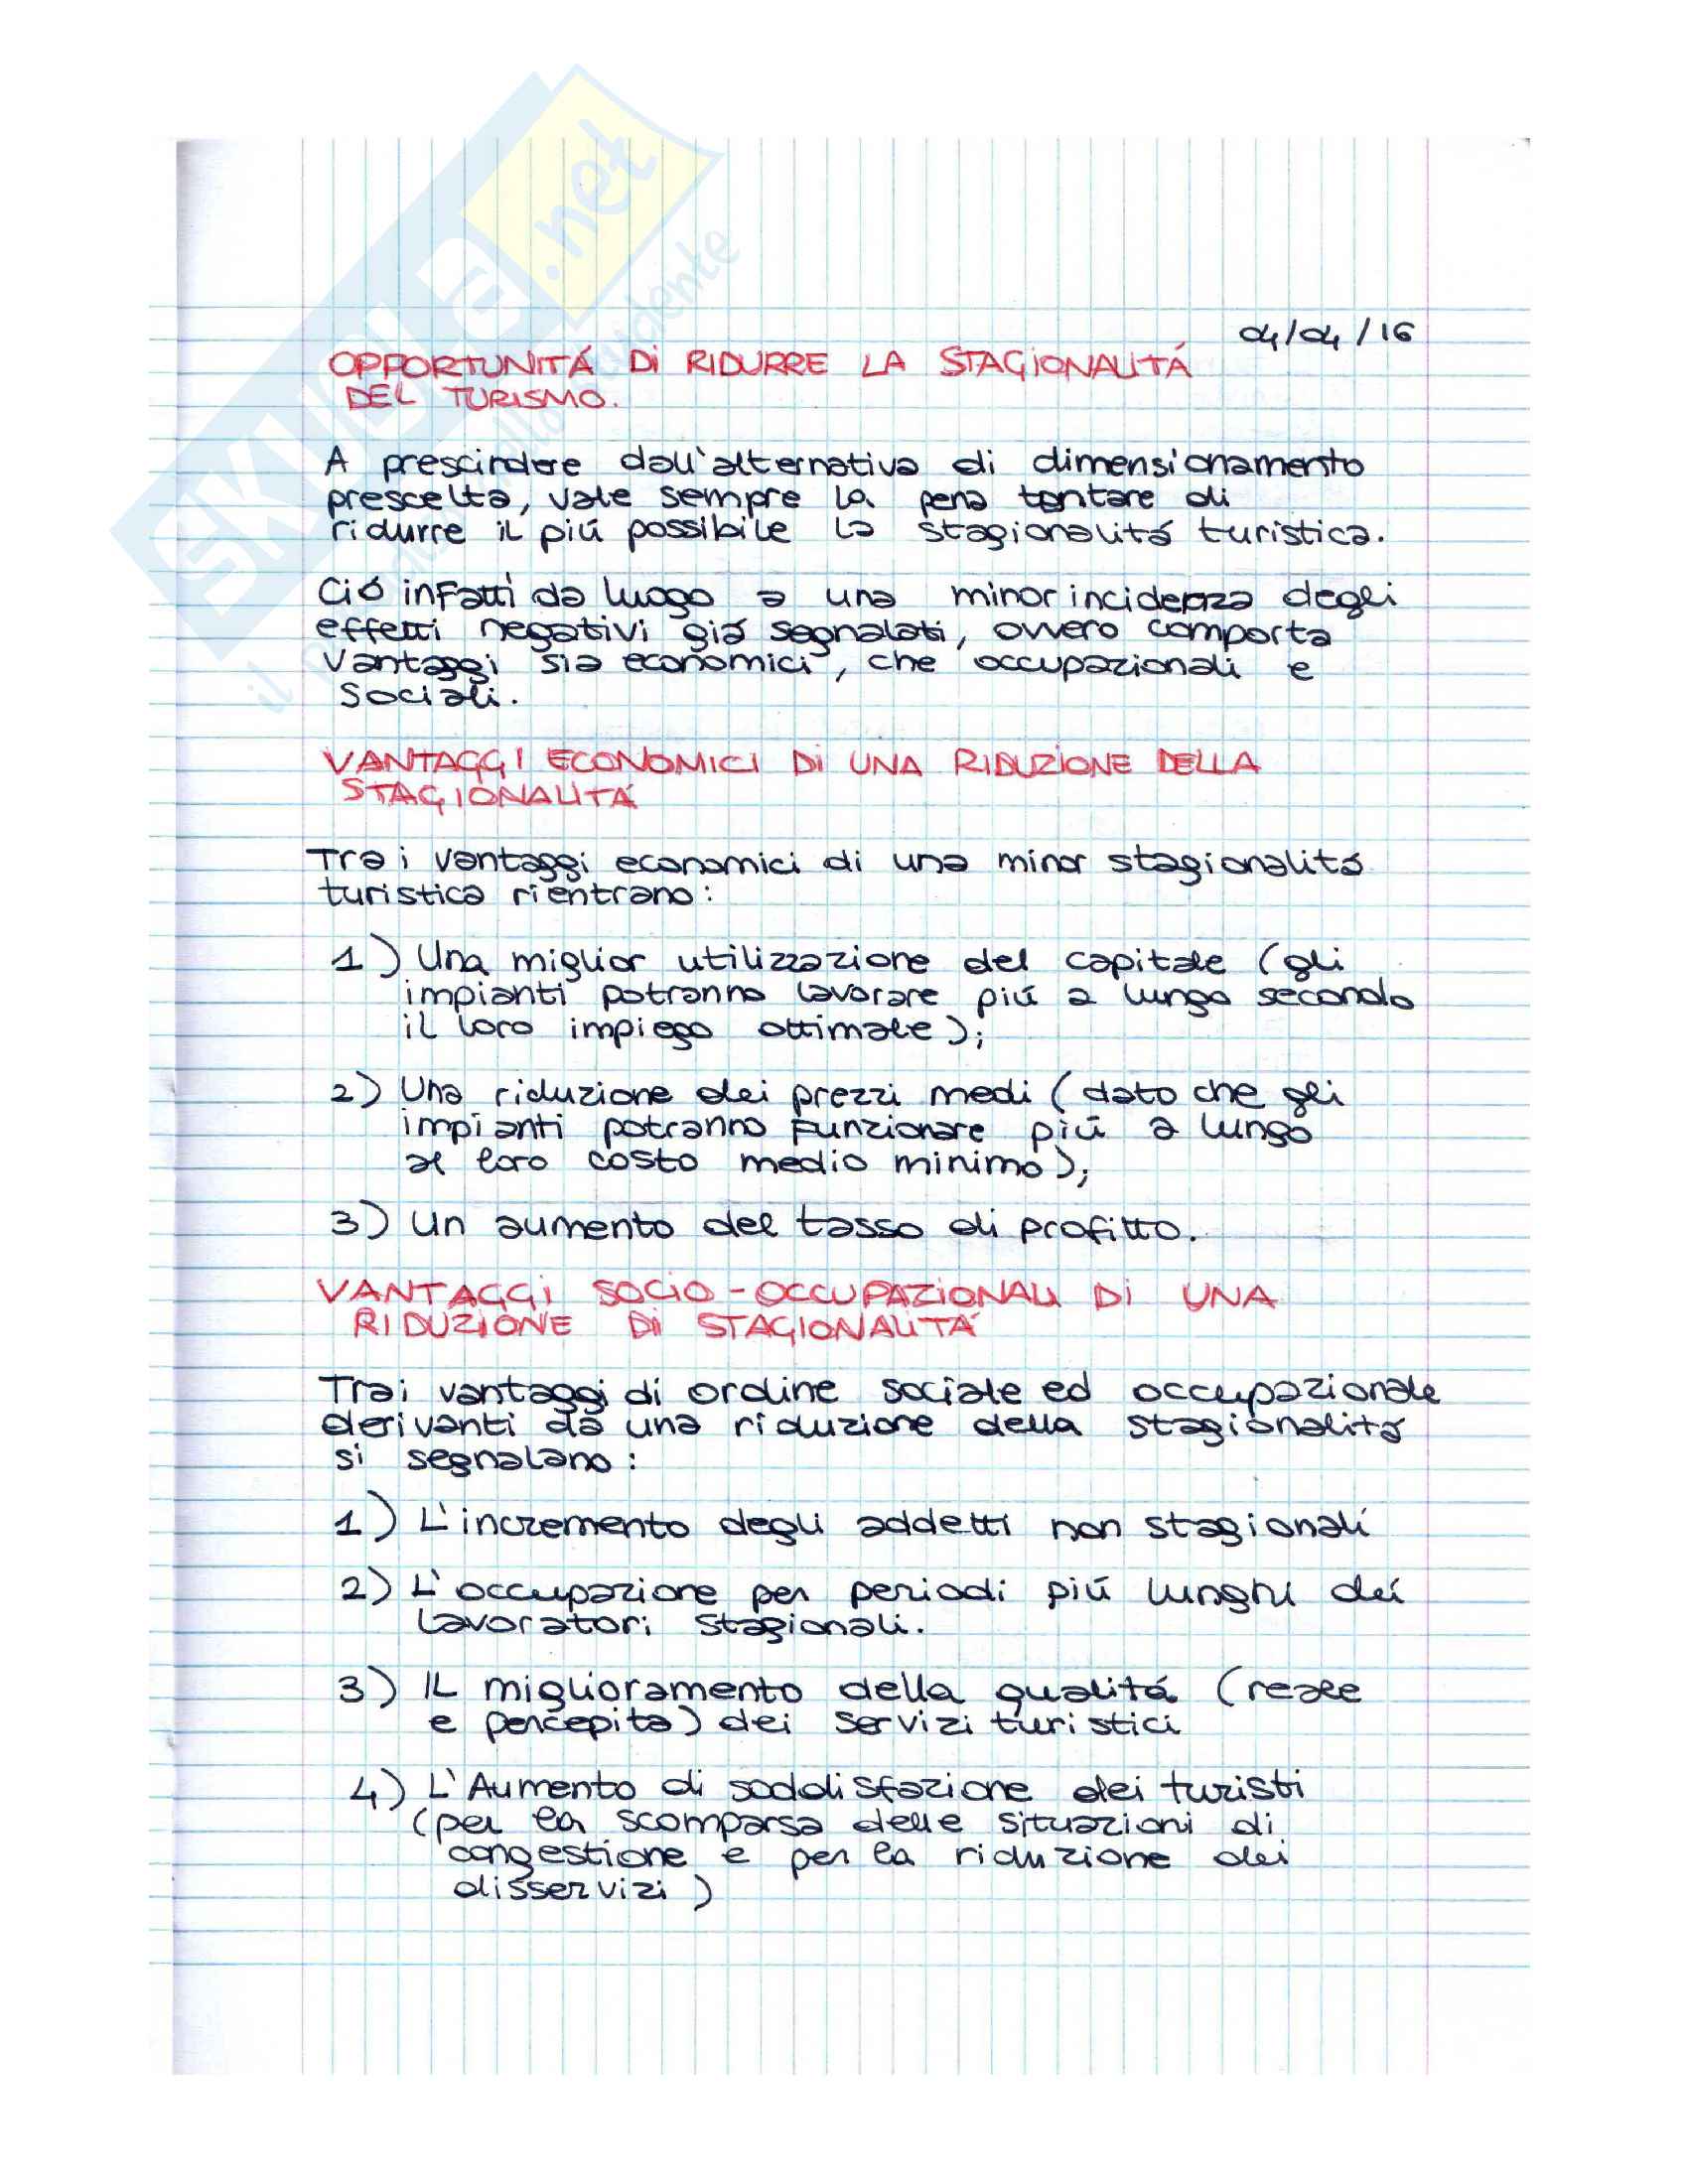 SKUOLA.net
il paradiso dello studente
04/04/16
OPPORTUNITÁ DI RIDURRE LA STAGIONALITÁ
DEL TURISMO.
A prescindere dall'alternativa di dimensionamento
prescelta, vale sempre la pena tentare di
ridurre il piú possibile la stagionalitá turistica.
Ció infatti da luogo a una minor incidenza degli
effetti negativi giá segnalati, ovvero comporta
vantaggi sia economici, che occupazionali e
sociali.
VANTAGGI ECONOMICI DI UNA RIDUZIONE DELLA
STAGIONALITÁ
Tra i vantaggi economici di una minor stagionalitá
turistica rientrano:
1) Una miglior utilizzazione del capitale (gli
impianti potranno lavorare piú a lungo secondo
il loro impiego ottimale);
2) Una riduzione dei prezzi medi (dato che gli
impianti potranno funzionare piú a lungo
al loro costo medio minimo);
3) Un aumento del tasso di profitto.
VANTAGGI SOCIO-OCCUPAZIONALI DI UNA
RIDUZIONE DI STAGIONALITÁ
Tra i vantaggi di ordine sociale ed occupazionale
derivanti da una riduzione della stagionalitá
si segnalano:
1) L'incremento degli addetti non stagionali
2) L'occupazione per periodi piú lunghi dei
lavoratori stagionali.
3) Il miglioramento della qualitá (reale
e percepita) dei servizi turistici
4) L'Aumento di soddisfazione dei turisti
(per la scomparsa delle situazioni di
congestione e per la riduzione dei
disservizi)